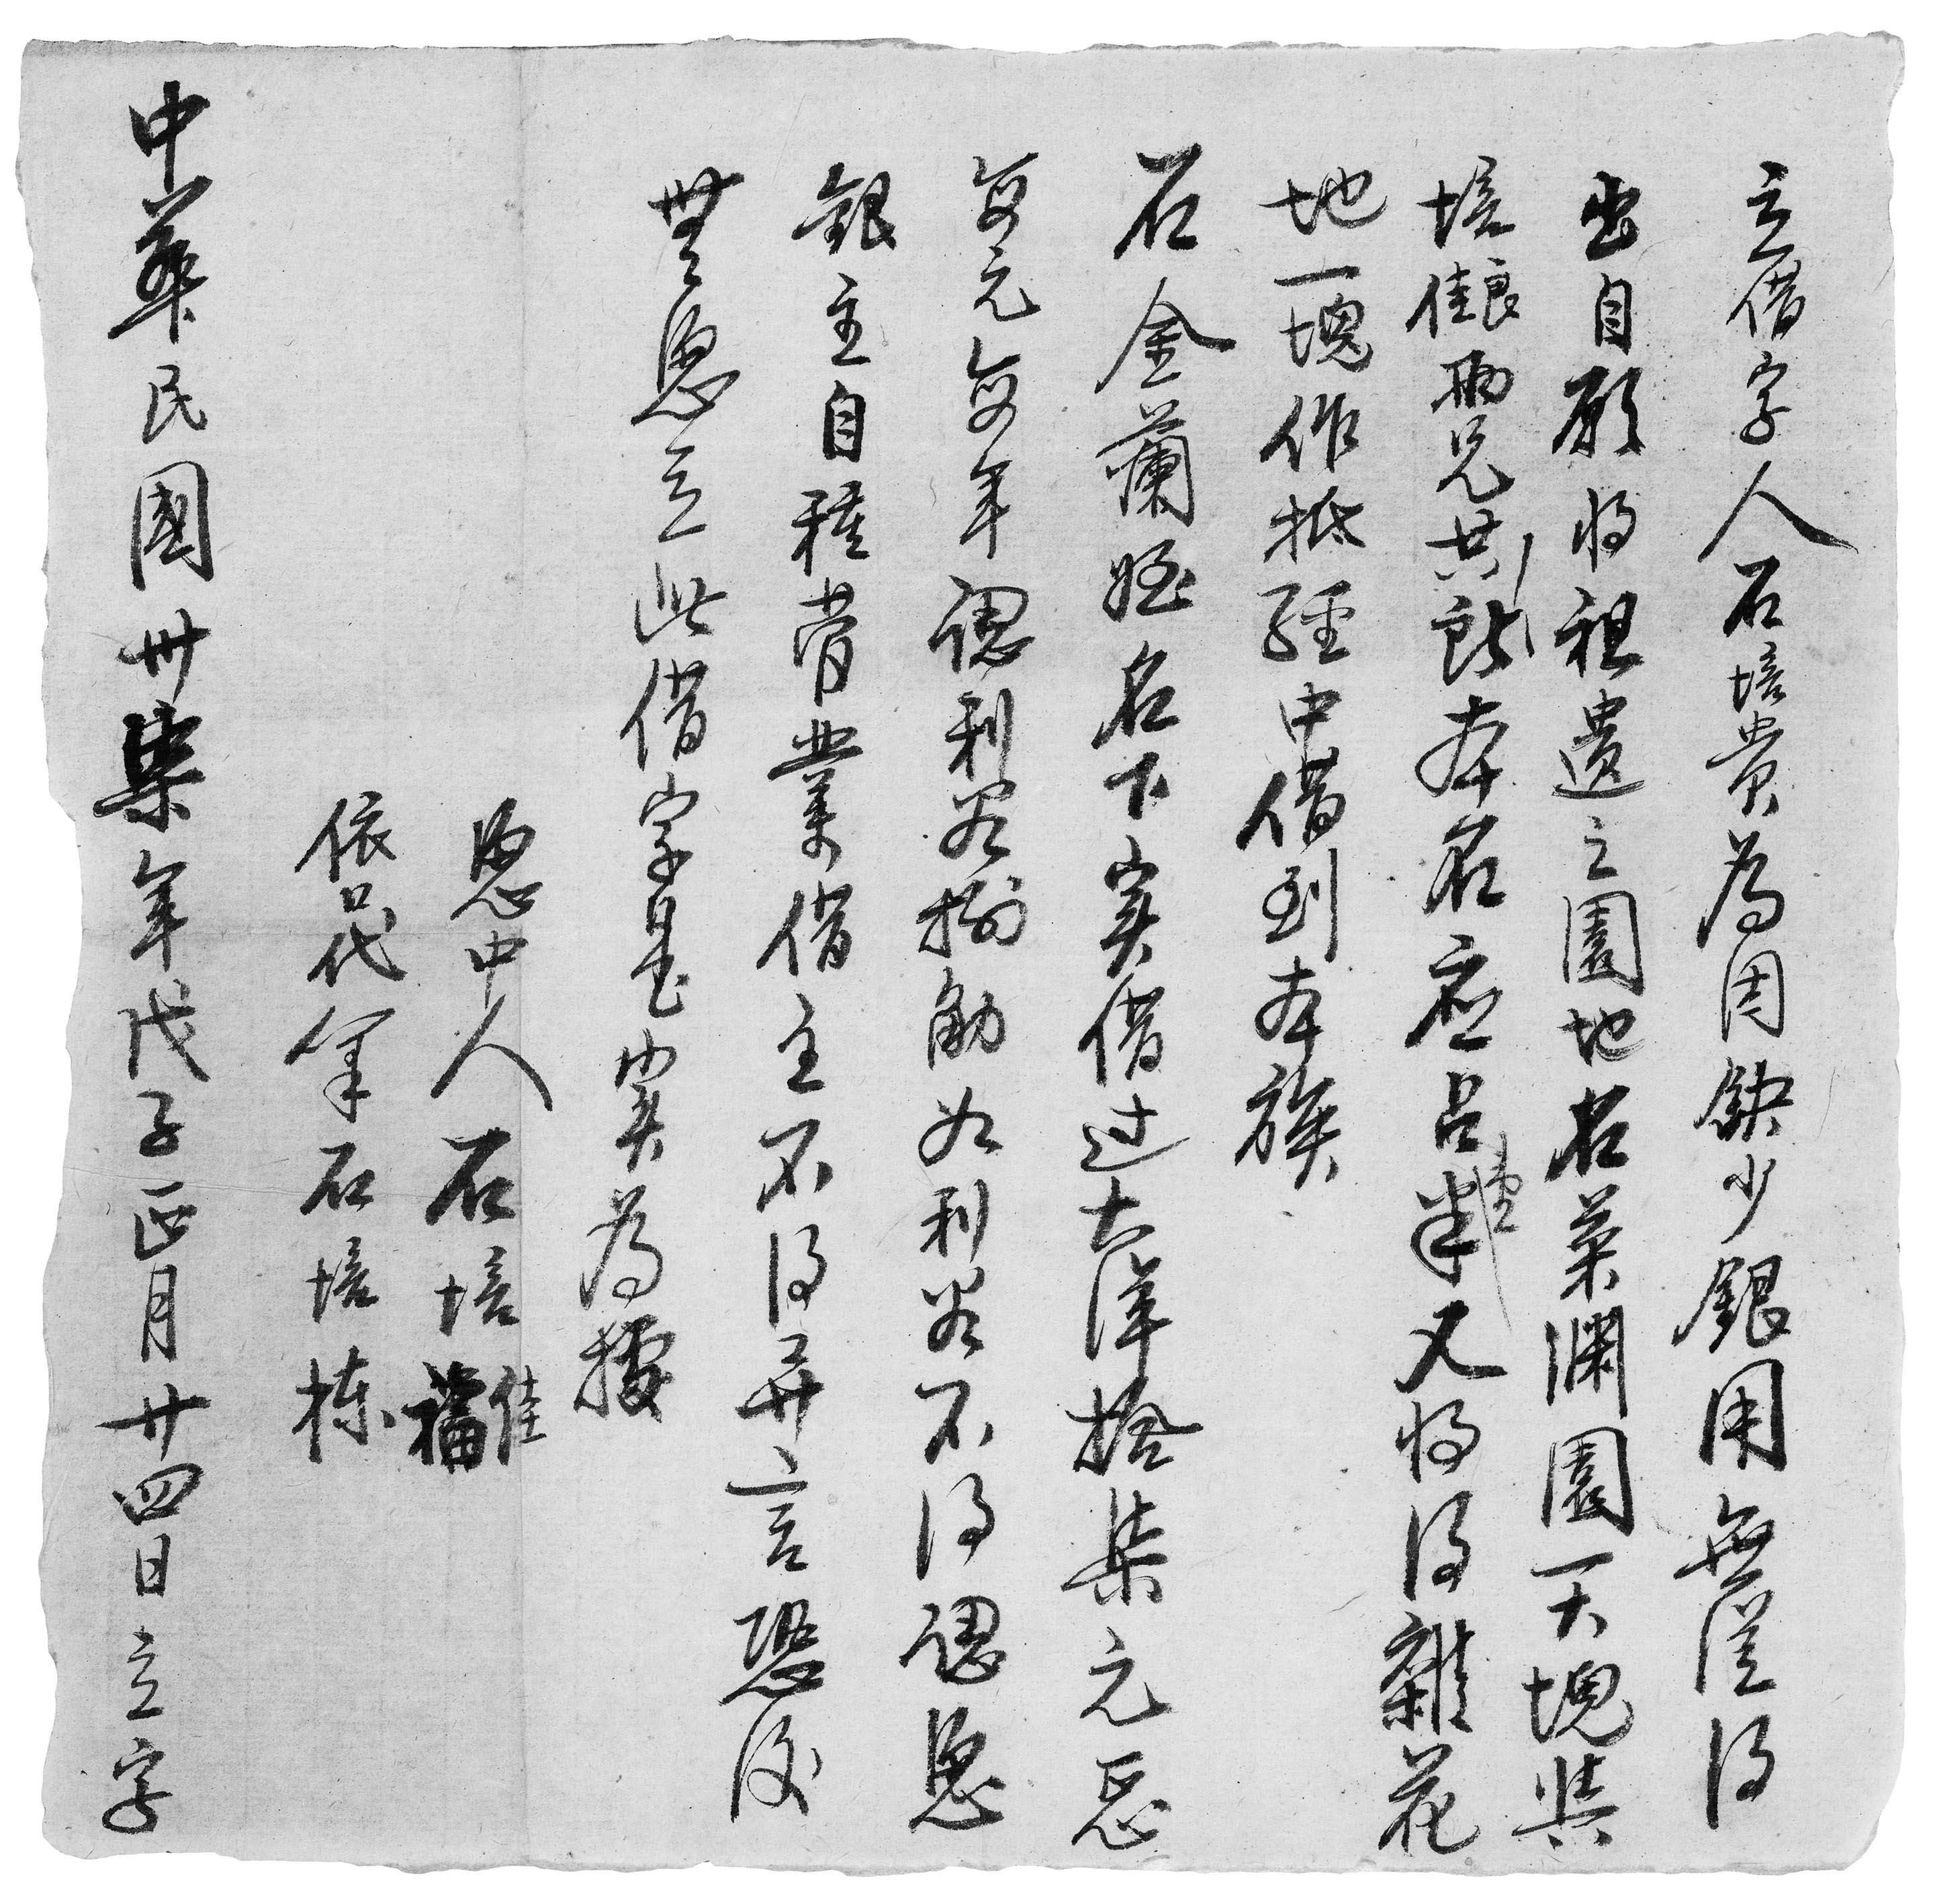 立借字人石培贵为因缺少銀用無從得
出自願将祖遺之園地名菜瀾園一大塊與
培佳良兩兄共派本名應占壹半又将得雜花
地一塊作抵經中借到本族
石金蘭姪名下实借过大洋拾柒元
每元每年認利谷捌觔如利谷不得認憑
銀主自種管業借主不得異言恐後
無憑立此借字是實为據
憑中人石培佳福
依口代筆石培棟
中華民國卅柒年戊子正月廿四日立字